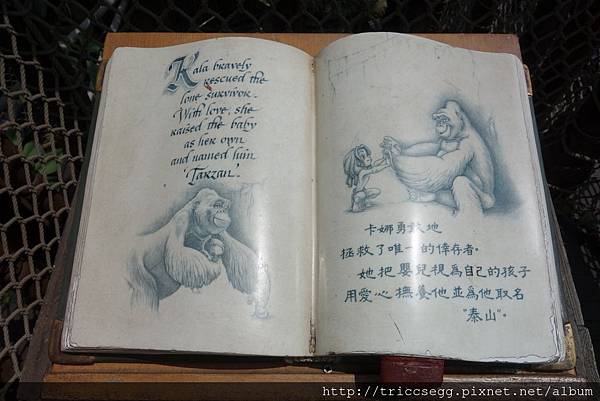 Kala bravely
rescued the
lone survivor.
With love, she
raised the baby
as her own
and named him
'Tarzan'.
卡娜勇敢地
拯救了唯一的倖存者。
她把嬰兒視為自己的孩子
用愛心撫養他並為他取名
"泰山"。
http://triccsegg.pixnet.net/album